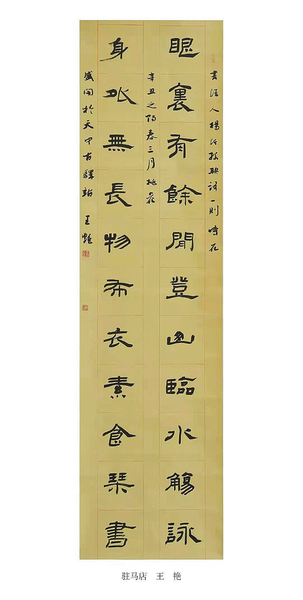 書清人楊沂孫聯詞一則時在
眼裏有餘閒登山臨水觴詠
辛丑之阳春三月桃花
身外無長物布衣素食琴書
盛開於天中古驛站王艷
驻马店 王 艳